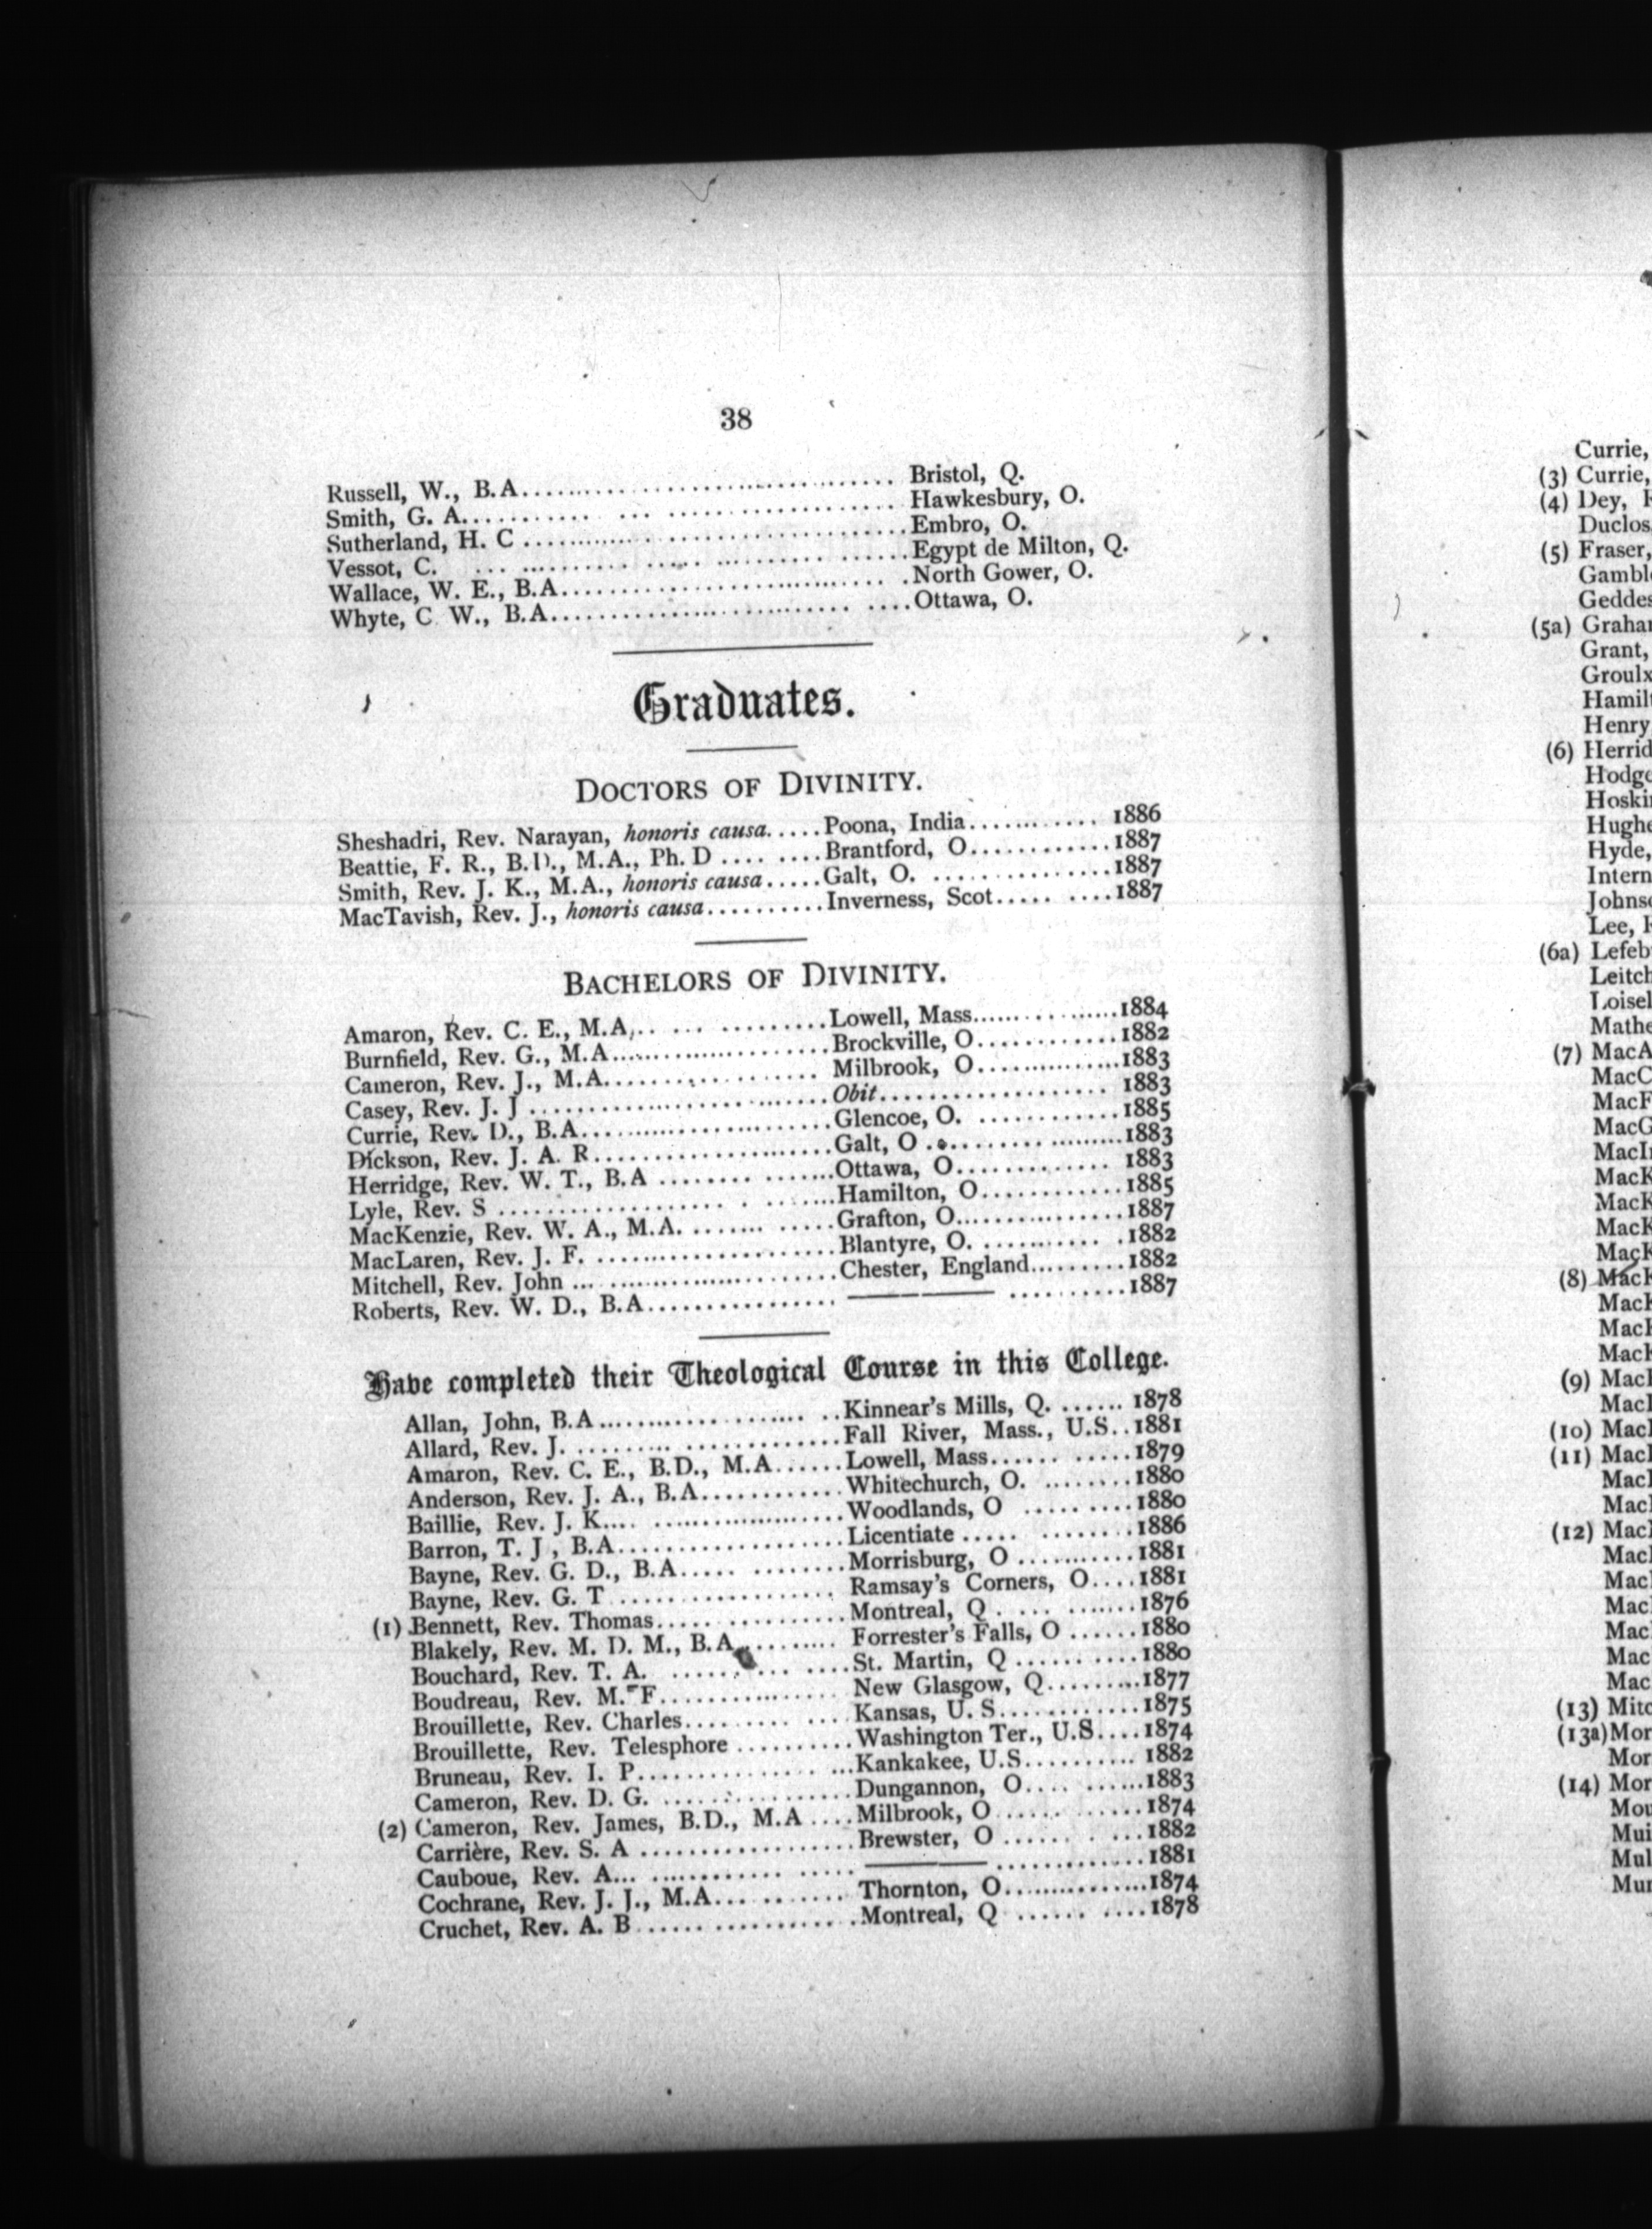 38
Russell, W., B.A. Bristol, Q.
Smith, G. A. Hawkesbury, O.
Sutherland, H. C Embro, O.
Vessot, C. Egypt de Milton, Q.
Wallace, W. E., B.A. North Gower, O.
Whyte, C W., B.A. Ottawa, O.
Graduates.
DOCTORS OF DIVINITY.
Sheshadri, Rev. Narayan, honoris causa. Poona, India. 1886
Beattie, F. R., B.D., M.A., Ph. D Brantford, O. 1887
Smith, Rev. J. K., M.A., honoris causa Galt, O. 1887
MacTavish, Rev. J., honoris causa Inverness, Scot. 1887
BACHELORS OF DIVINITY.
Amaron, Rev. C. E., M.A. Lowell, Mass. 1884
Burnfield, Rev. G., M.A. Brockville, O. 1882
Cameron, Rev. J., M.A. Milbrook, O. 1883
Casey, Rev. J. J Obit. 1883
Currie, Rev. D., B.A. Glencoe, O. 1885
Dickson, Rev. J. A. R. Galt, O 1883
Herridge, Rev. W. T., B.A Ottawa, O. 1883
Lyle, Rev. S Hamilton, O. 1885
MacKenzie, Rev. W. A., M.A. Grafton, O. 1887
MacLaren, Rev. J. F. Blantyre, O. 1882
Mitchell, Rev. John Chester, England. 1882
Roberts, Rev. W. D., B.A. ——— 1887
Have completed their Theological Course in this College.
Allan, John, B.A. Kinnear's Mills, Q. 1878
Allard, Rev. J. Fall River, Mass., U.S. 1881
Amaron, Rev. C. E., B.D., M.A. Lowell, Mass. 1879
Anderson, Rev. J. A., B.A. Whitechurch, O. 1880
Baillie, Rev. J. K. Woodlands, O 1880
Barron, T. J , B.A. Licentiate 1886
Bayne, Rev. G. D., B.A. Morrisburg, O 1881
Bayne, Rev. G. T Ramsay's Corners, O. 1881
(1) Bennett, Rev. Thomas. Montreal, Q. 1876
Blakely, Rev. M. D. M., B.A. Forrester's Falls, O 1880
Bouchard, Rev. T. A. St. Martin, Q 1880
Boudreau, Rev. M. F. New Glasgow, Q. 1877
Brouillette, Rev. Charles. Kansas, U. S. 1875
Brouillette, Rev. Telesphore Washington Ter., U.S. 1874
Bruneau, Rev. I. P. Kankakee, U.S. 1882
Cameron, Rev. D. G. Dungannon, O. 1883
(2) Cameron, Rev. James, B.D., M.A Milbrook, O 1874
Carrière, Rev. S. A Brewster, O 1882
Cauboue, Rev. A. ——— 1881
Cochrane, Rev. J. J., M.A. Thornton, O. 1874
Cruchet, Rev. A. B Montreal, Q 1878
Currie,
(3) Currie,
(4) Dey,
Duclos
(5) Fraser,
Gambl
Geddes
(5a) Graha
Grant,
Groulx
Hamil
Henry
(6) Herrid
Hodge
Hoski
Hughe
Hyde,
Intern
Johnso
Lee,
(6a) Lefeb
Leitch
Loisel
Mathe
(7) MacA
MacC
MacF
MacG
MacI
MacK
MacK
MacK
MacK
(8) MacK
Mac
Mac
Mac
(9) Mac
Mac
(10) Mac
(11) Mac
Mac
Mac
(12) Mac
Mac
Mac
Mac
Mac
Mac
Mac
(13) Mitc
(13a) Mor
Mor
(14) Mor
Mou
Mui
Mul
Mur